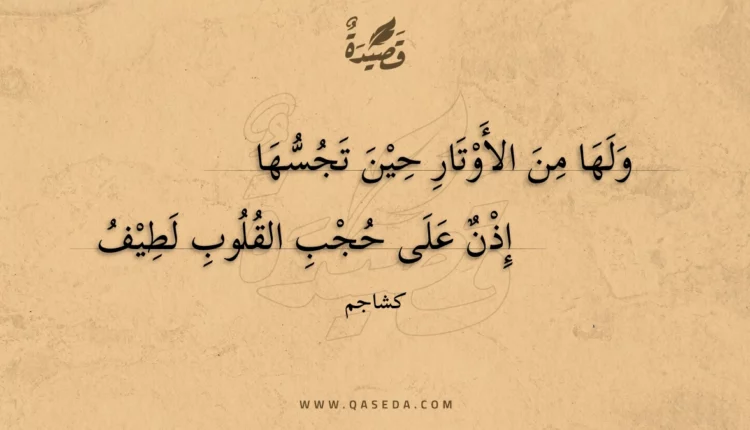 قَصِيْدَةٌ
وَلَهَا مِنَ الأَوْتَارِ حِيْنَ تَجُسُّهَا
إِذْنٌ عَلَى حُجْبِ القُلُوبِ لَطِيْفُ
كشاجم
WWW.QASEDA.COM